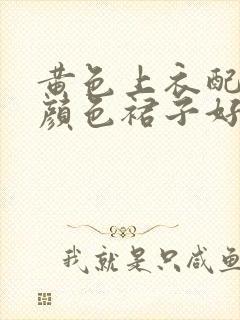 黄色上衣配
颜色裙子好
我就是只咸鱼